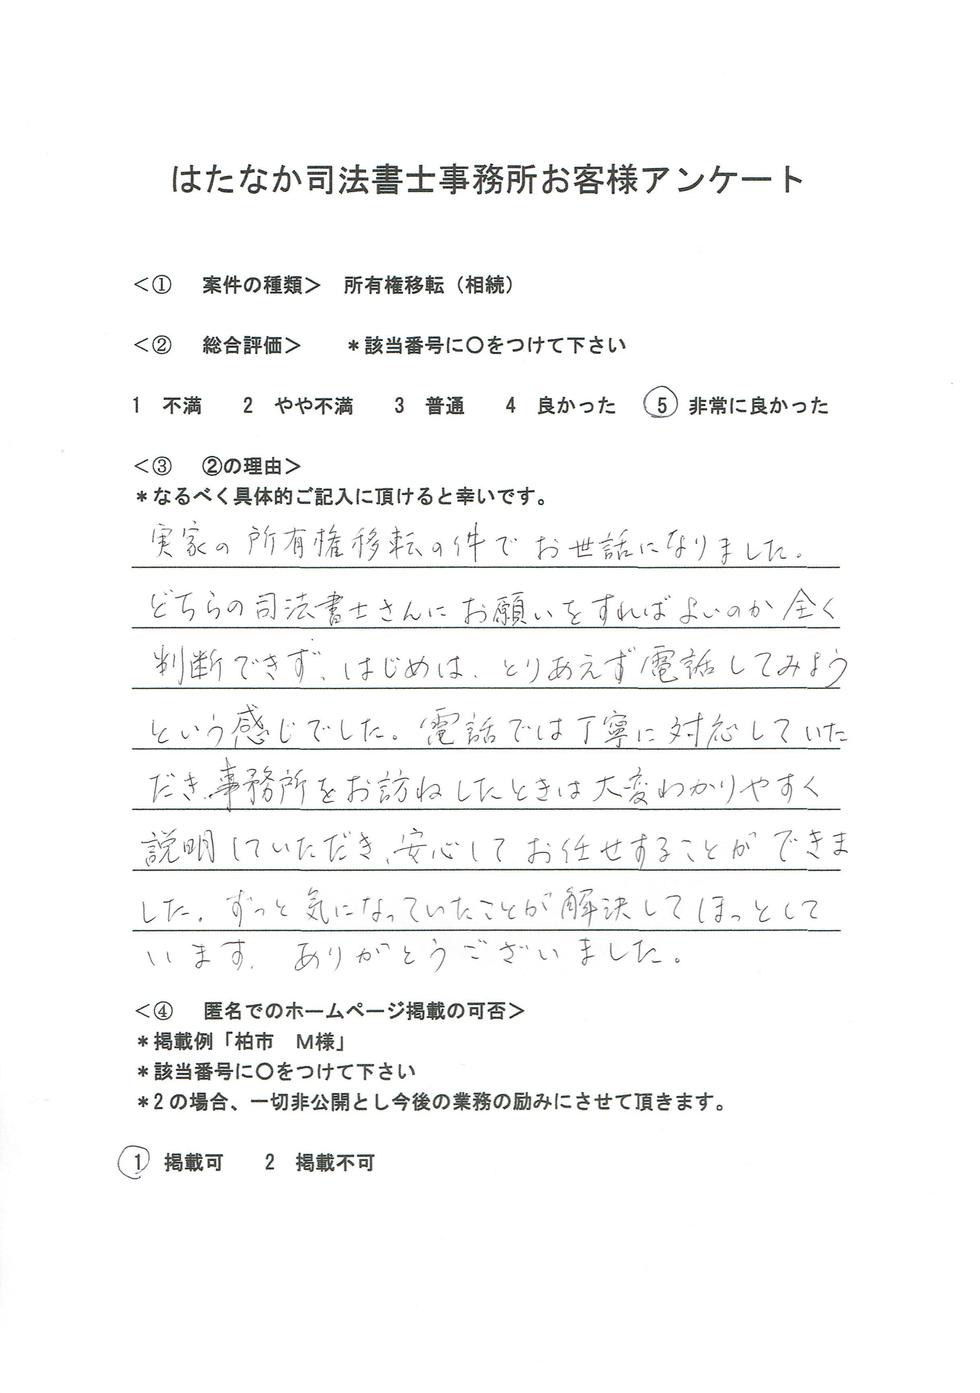 はたなか司法書士事務所お客様アンケート
＜①　案件の種類＞　所有権移転（相続）
＜②　総合評価＞　　＊該当番号に〇をつけて下さい
1　不満　　2　やや不満　　3　普通　　4　良かった　　5　非常に良かった
＜③　②の理由＞
＊なるべく具体的ご記入に頂けると幸いです。
実家の所有権移転の件でお世話になりました。
どちらの司法書士さんにお願いをすればよいのか全く
判断できず、はじめは、とりあえず電話してみよう
という感じでした。電話では丁寧に対応していた
だき、事務所をお訪ねしたときは大変わかりやすく
説明していただき、安心してお任せすることができま
した。ずっと気になっていたことが解決してほっとして
います。ありがとうございました。
＜④　匿名でのホームページ掲載の可否＞
＊掲載例「柏市　M様」
＊該当番号に〇をつけて下さい
＊2の場合、一切非公開とし今後の業務の励みにさせて頂きます。
1　掲載可　　2　掲載不可